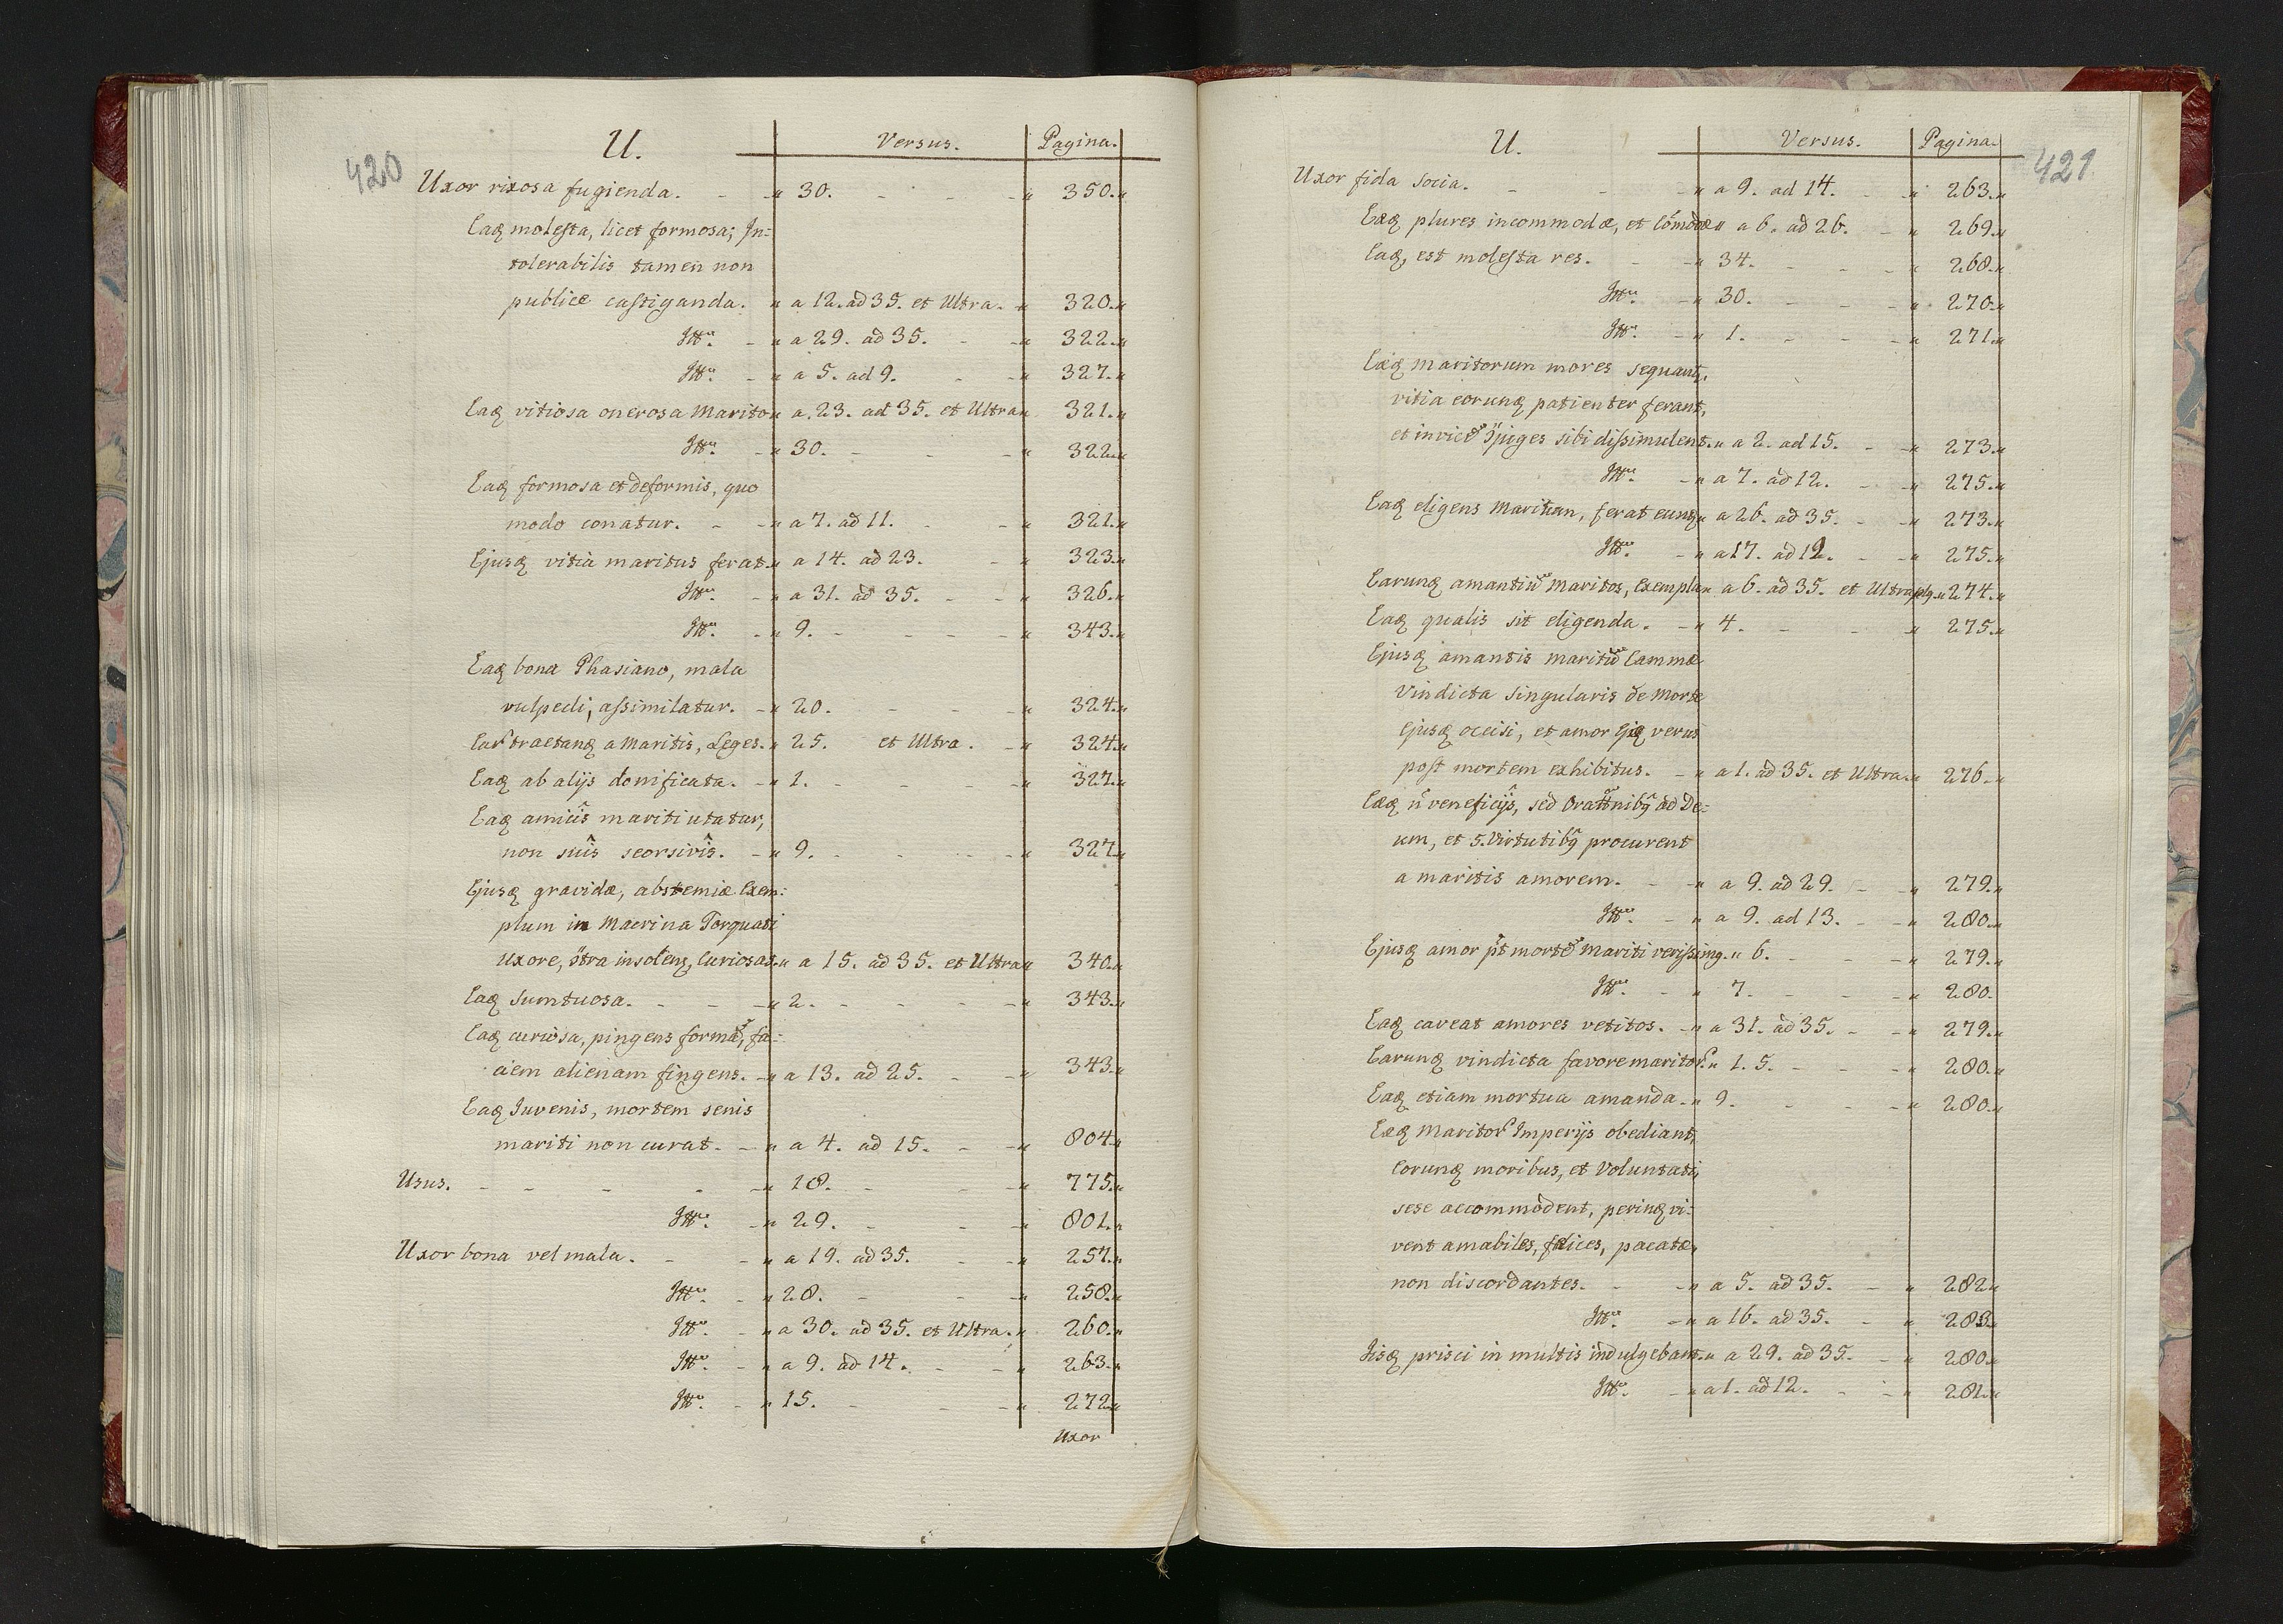 420
U. Versus. Pagina.
Uxor rixosa fugienda. - - " 30. - - - " 350."
Eaq molesta, licet formosa; In=
tolerabilis tamen non
publice castiganda. " a 12. ad 35. et Ultra. " 320."
Itt". - " a 29. ad 35. - " 322."
Itt". - " a 5. ad 9. - " 327."
Eaq vitiosa onerosa Marito " a. 23. ad 35. et Ultra " 321."
Itt". - " 30. - - - " 322."
Eaq formosa et deformis, quo
modo conatur. - - " a 7. ad 11. - - " 321."
Ejusq vitia maritus ferat. " a 14. ad 23. - " 323."
Itt". - " a 31. ad 35. - - " 326."
Itt". - " 9. - - - - " 343."
Eaq bona Phasiano, mala
vulpedi, assimilatur. - " 20. - - - " 324."
tractanq a Maritis, Leges. " 25. et Ultra. - " 324."
Eaq ab alijs donificata. - " 1. - - - - " 327."
Eaq amicis mariti utatur,
non suis seorsivis. - " 9. - - - - " 327."
Ejusq gravidæ, abstemiæ Exem=
plum in Macrina Torquati
Uxore, ötra insolenq, Curiosas. " a 15. ad 35. et Ultra " 340."
Eaq sumtuosa. - - - " 2. - - - - " 343."
Eaq curiosa, pingens forma, fa=
ciem alienam fingens. - " a 13. ad 25. - - " 343."
Eaq Juvenis, mortem senis
mariti non curat. - - " a 4. ad 15. - - " 804."
Usus. - - - - - " 18. - - - " 775."
Itt". - " 29. - - - " 801."
Uxor bona vel mala. - - " a 19. ad 35. - - " 257."
Itt". - " 28. - - - " 258."
Itt". - " a 30. ad 35. et Ultra. " 260."
Itt". - " a 9. ad 14. - - " 263."
Itt". - " 15. - - - " 272."
Uxor
421
U. Versus. Pagina.
Uxor fida socia. - - - " a 9. ad 14. - - " 263."
Eæq plures incommodæ, et Comodæ " a 6. ad 26. - " 269."
Eaq, est molesta res. - - " 34. - - - " 268."
Itt". - " 30. - - - " 270."
Itt". - " 1. - - - " 271."
Eæq maritorum mores sequant,
vitia eorunq patienter ferant,
et invice sibi dissimulent. " a 2. ad 15. - " 273."
Itt". - " a 7. ad 12. - " 275."
Eaq eligens Maritum, ferat eunq " a 26. ad 35. - " 273."
Itt". - " a 17. ad 19. - - " 275."
Earunq amantiu Maritos, Exempla " a 6. ad 35. et Ultra plq. " 274."
Eaq qualis sit eligenda. - " 4. - - " 275."
Ejusq amantis maritu Cammæ
Vindicta singularis de Morte
Ejusq occisi, et amor Ejq verus
post mortem exhibitus. - " a 1. ad 35. et Ultra. " 276."
Eæq n veneficijs, sed Orattnibq ad De=
um, et 5. Virtutibq procurent
a maritis amorem. - - " a 9. ad 29. - " 279."
Itt". - " a 9. ad 13. - - " 280."
Ejusq amor pt morte Mariti verissimq. " 6. - - - " 279."
Itt". - " 7. - - - " 280.
Eaq caveat amores vetitos. - " a 31. ad 35. - - " 279."
Earunq vindicta favore maritor. " 1. 5. - - - " 280."
Eaq etiam mortua amanda. - " 9. - - - " 280."
Eæq Maritor Imperijs obediant,
Eorunq moribus, et Voluntati,
sese accommodent, perinq vi=
vent amabiles, felices, pacatæ,
non discordantes. - - " a 5. ad 35. - " 282"
Itt". - " a 16. ad 35. - " 283."
Iisq prisci in multis indulgebant. " a 29. ad 35. - " 280."
Itt". - " a 1. ad 12. - - " 281."